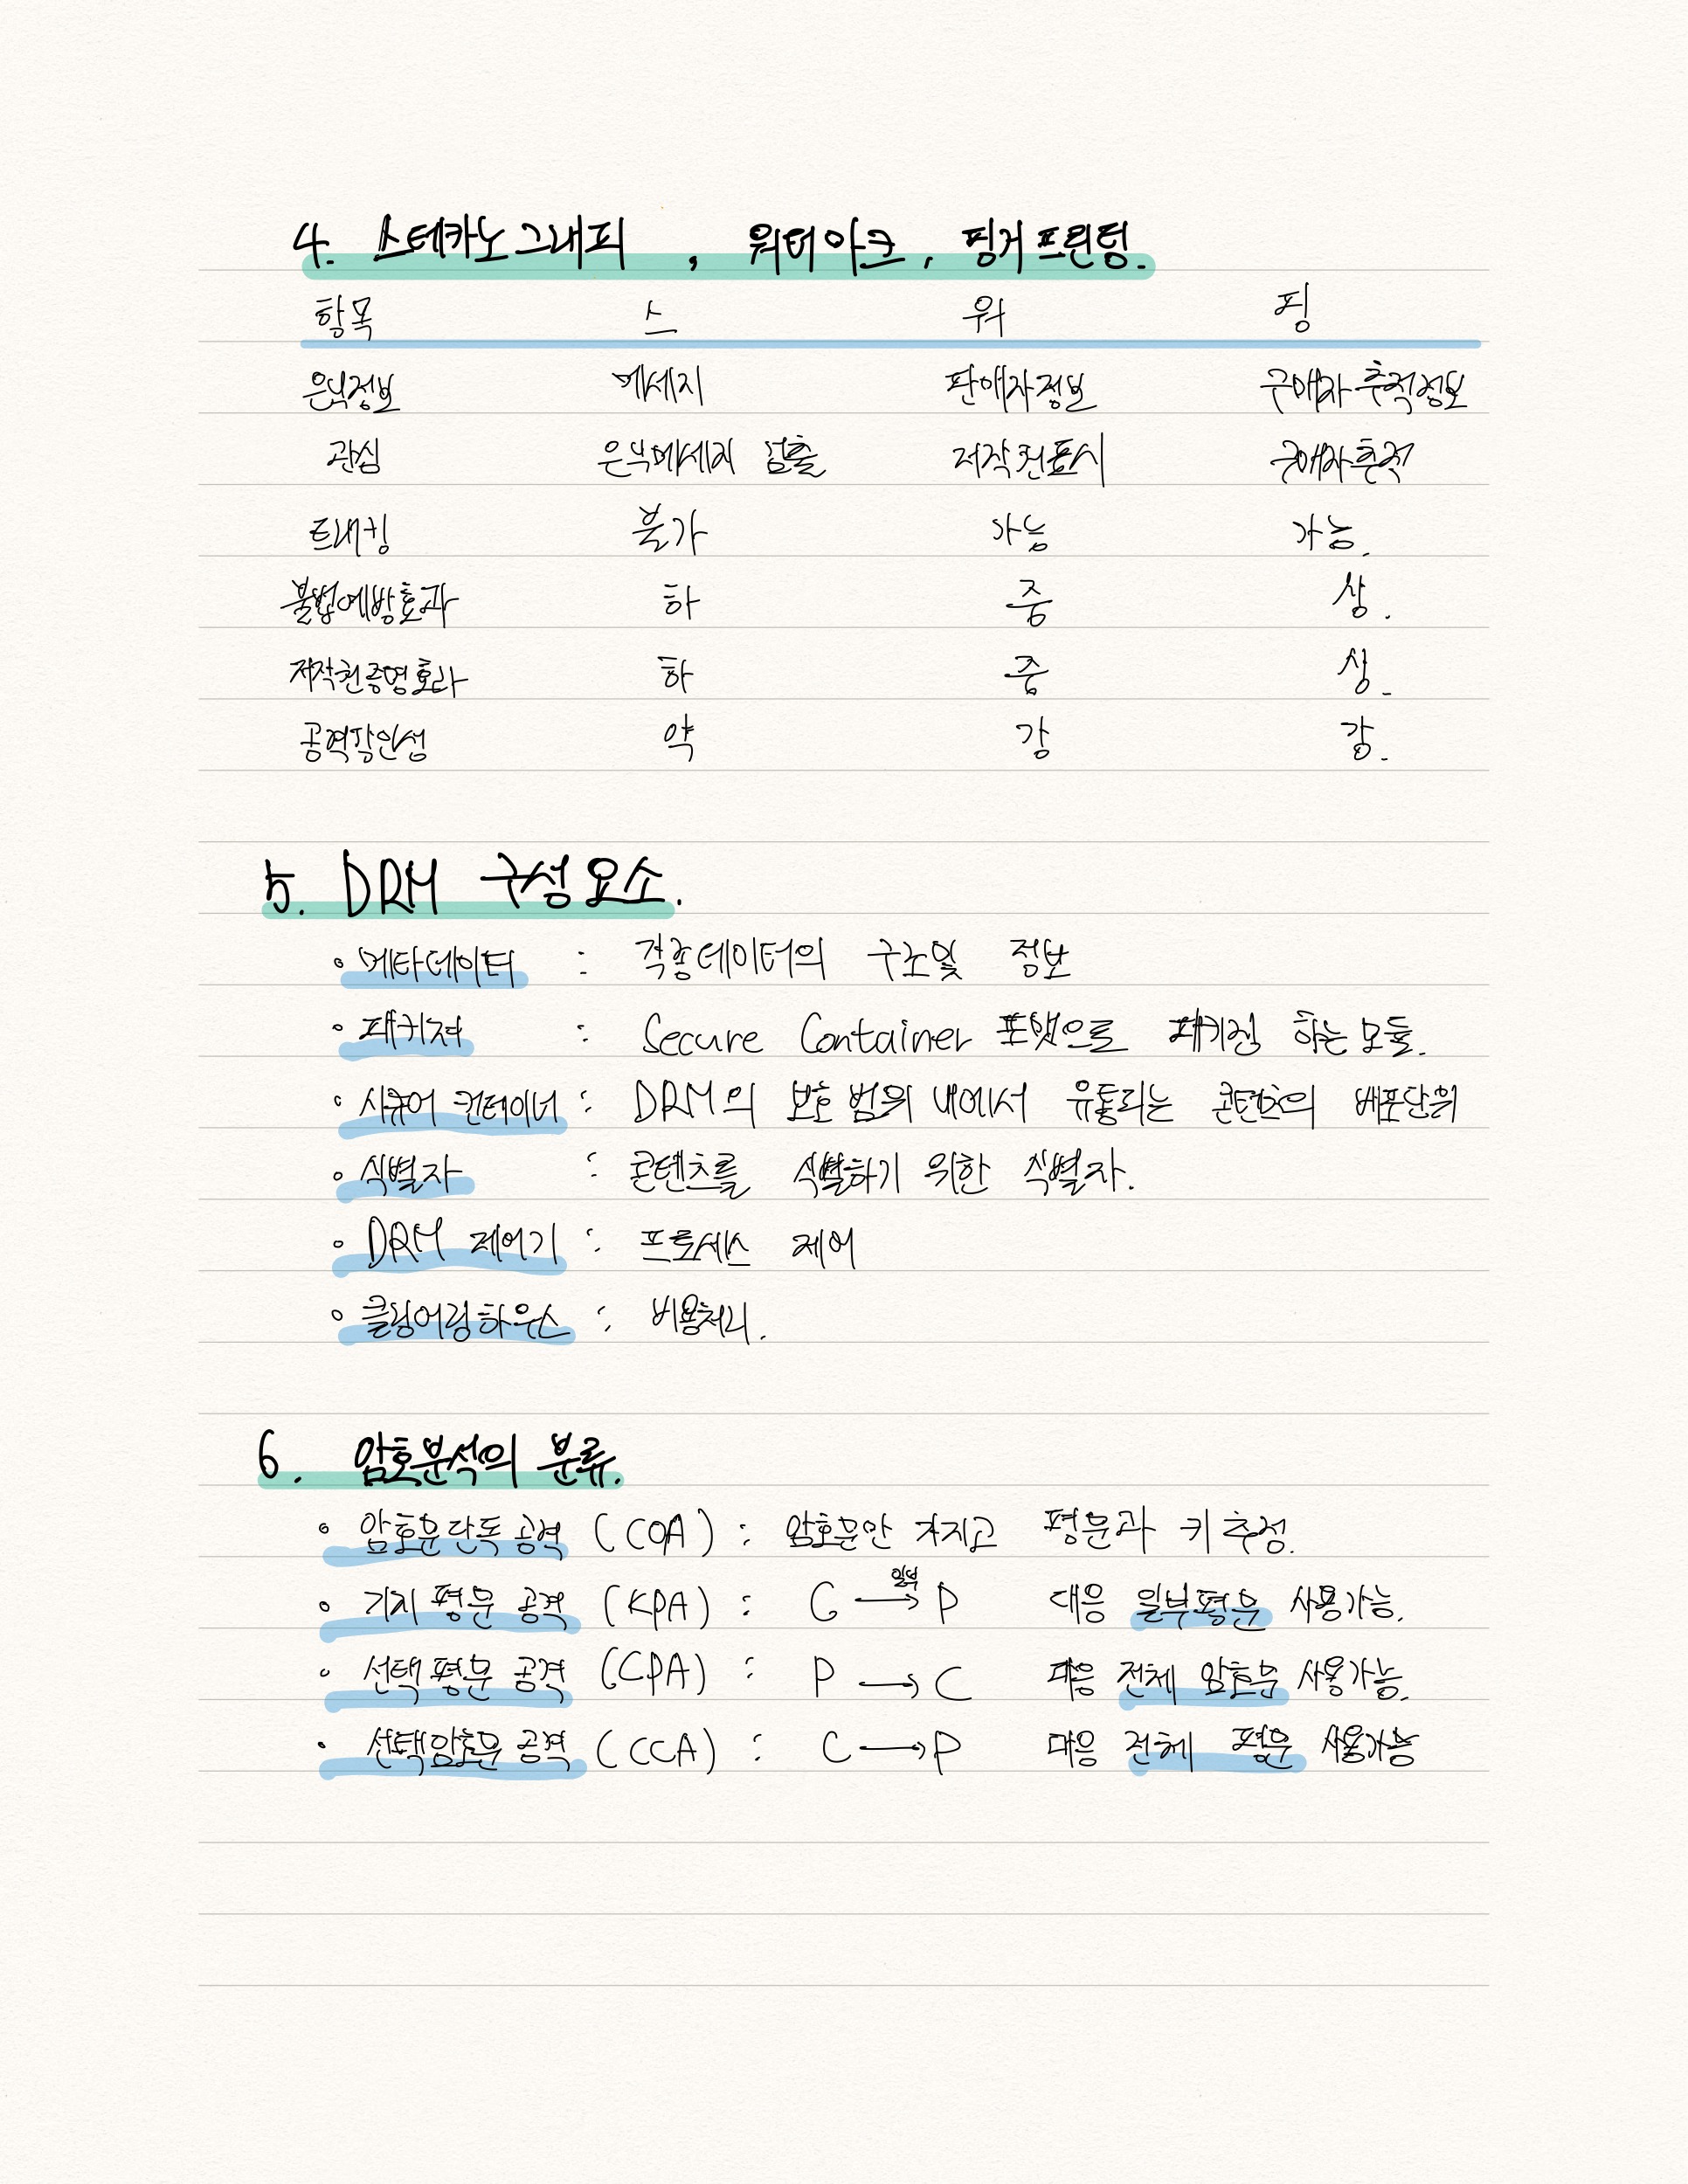 4. 스테카노그래피, 워터마크, 핑거프린팅.
항목 스 워 핑
은닉정보 메세지 판매자정보 구매자추적정보
관심 은닉메세지 검출 저작권표시 구매자추적
트래킹 불가 가능 가능.
불법예방효과 하 중 상.
저작권증명효과 하 중 상.
공격강인성 약 강 강.
5. DRM 구성요소.
• 메타데이터 : 각종데이터의 구조및 정보
• 패키져 : Secure Container 포맷으로 패키징 하는모듈.
• 시큐어 컨테이너 : DRM의 보호 범위 내에서 유통되는 콘텐츠의 배포단위
• 식별자 : 콘텐츠를 식별하기 위한 식별자.
• DRM 제어기 : 프로세스 제어
• 클링어링하우스 : 비용처리.
6. 암호분석의 분류.
• 암호문단독 공격 (COA) : 암호문만 가지고 평문과 키 추정.
• 기지 평문 공격 (KPA) : C 일부→ P 대응 일부평문 사용가능.
• 선택평문 공격 (CPA) : P → C 대응 전체 암호문 사용가능.
• 선택암호문 공격 (CCA) : C → P 대응 전체 평문 사용가능